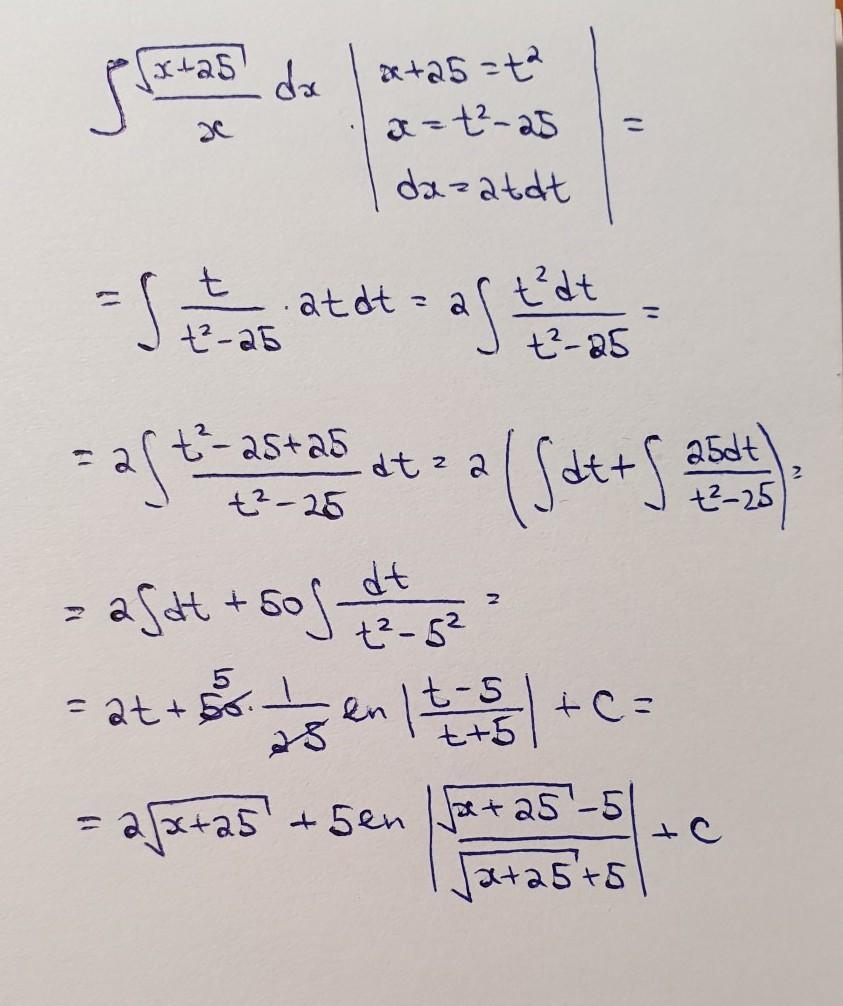 ∫ √(x+25)/x dx | x+25 = t² | =
x = t² - 25
dx = 2tdt
= ∫ t/(t²-25) · 2tdt = 2∫ t²dt/(t²-25) =
= 2∫ (t²-25+25)/(t²-25) dt = 2(∫dt + ∫ 25dt/(t²-25)) =
= 2∫dt + 50∫ dt/(t²-5²) =
= 2t + 50 5 · 1/(2·5) ln |(t-5)/(t+5)| + C =
= 2√(x+25) + 5 ln |(√(x+25) - 5)/(√(x+25) + 5)| + C